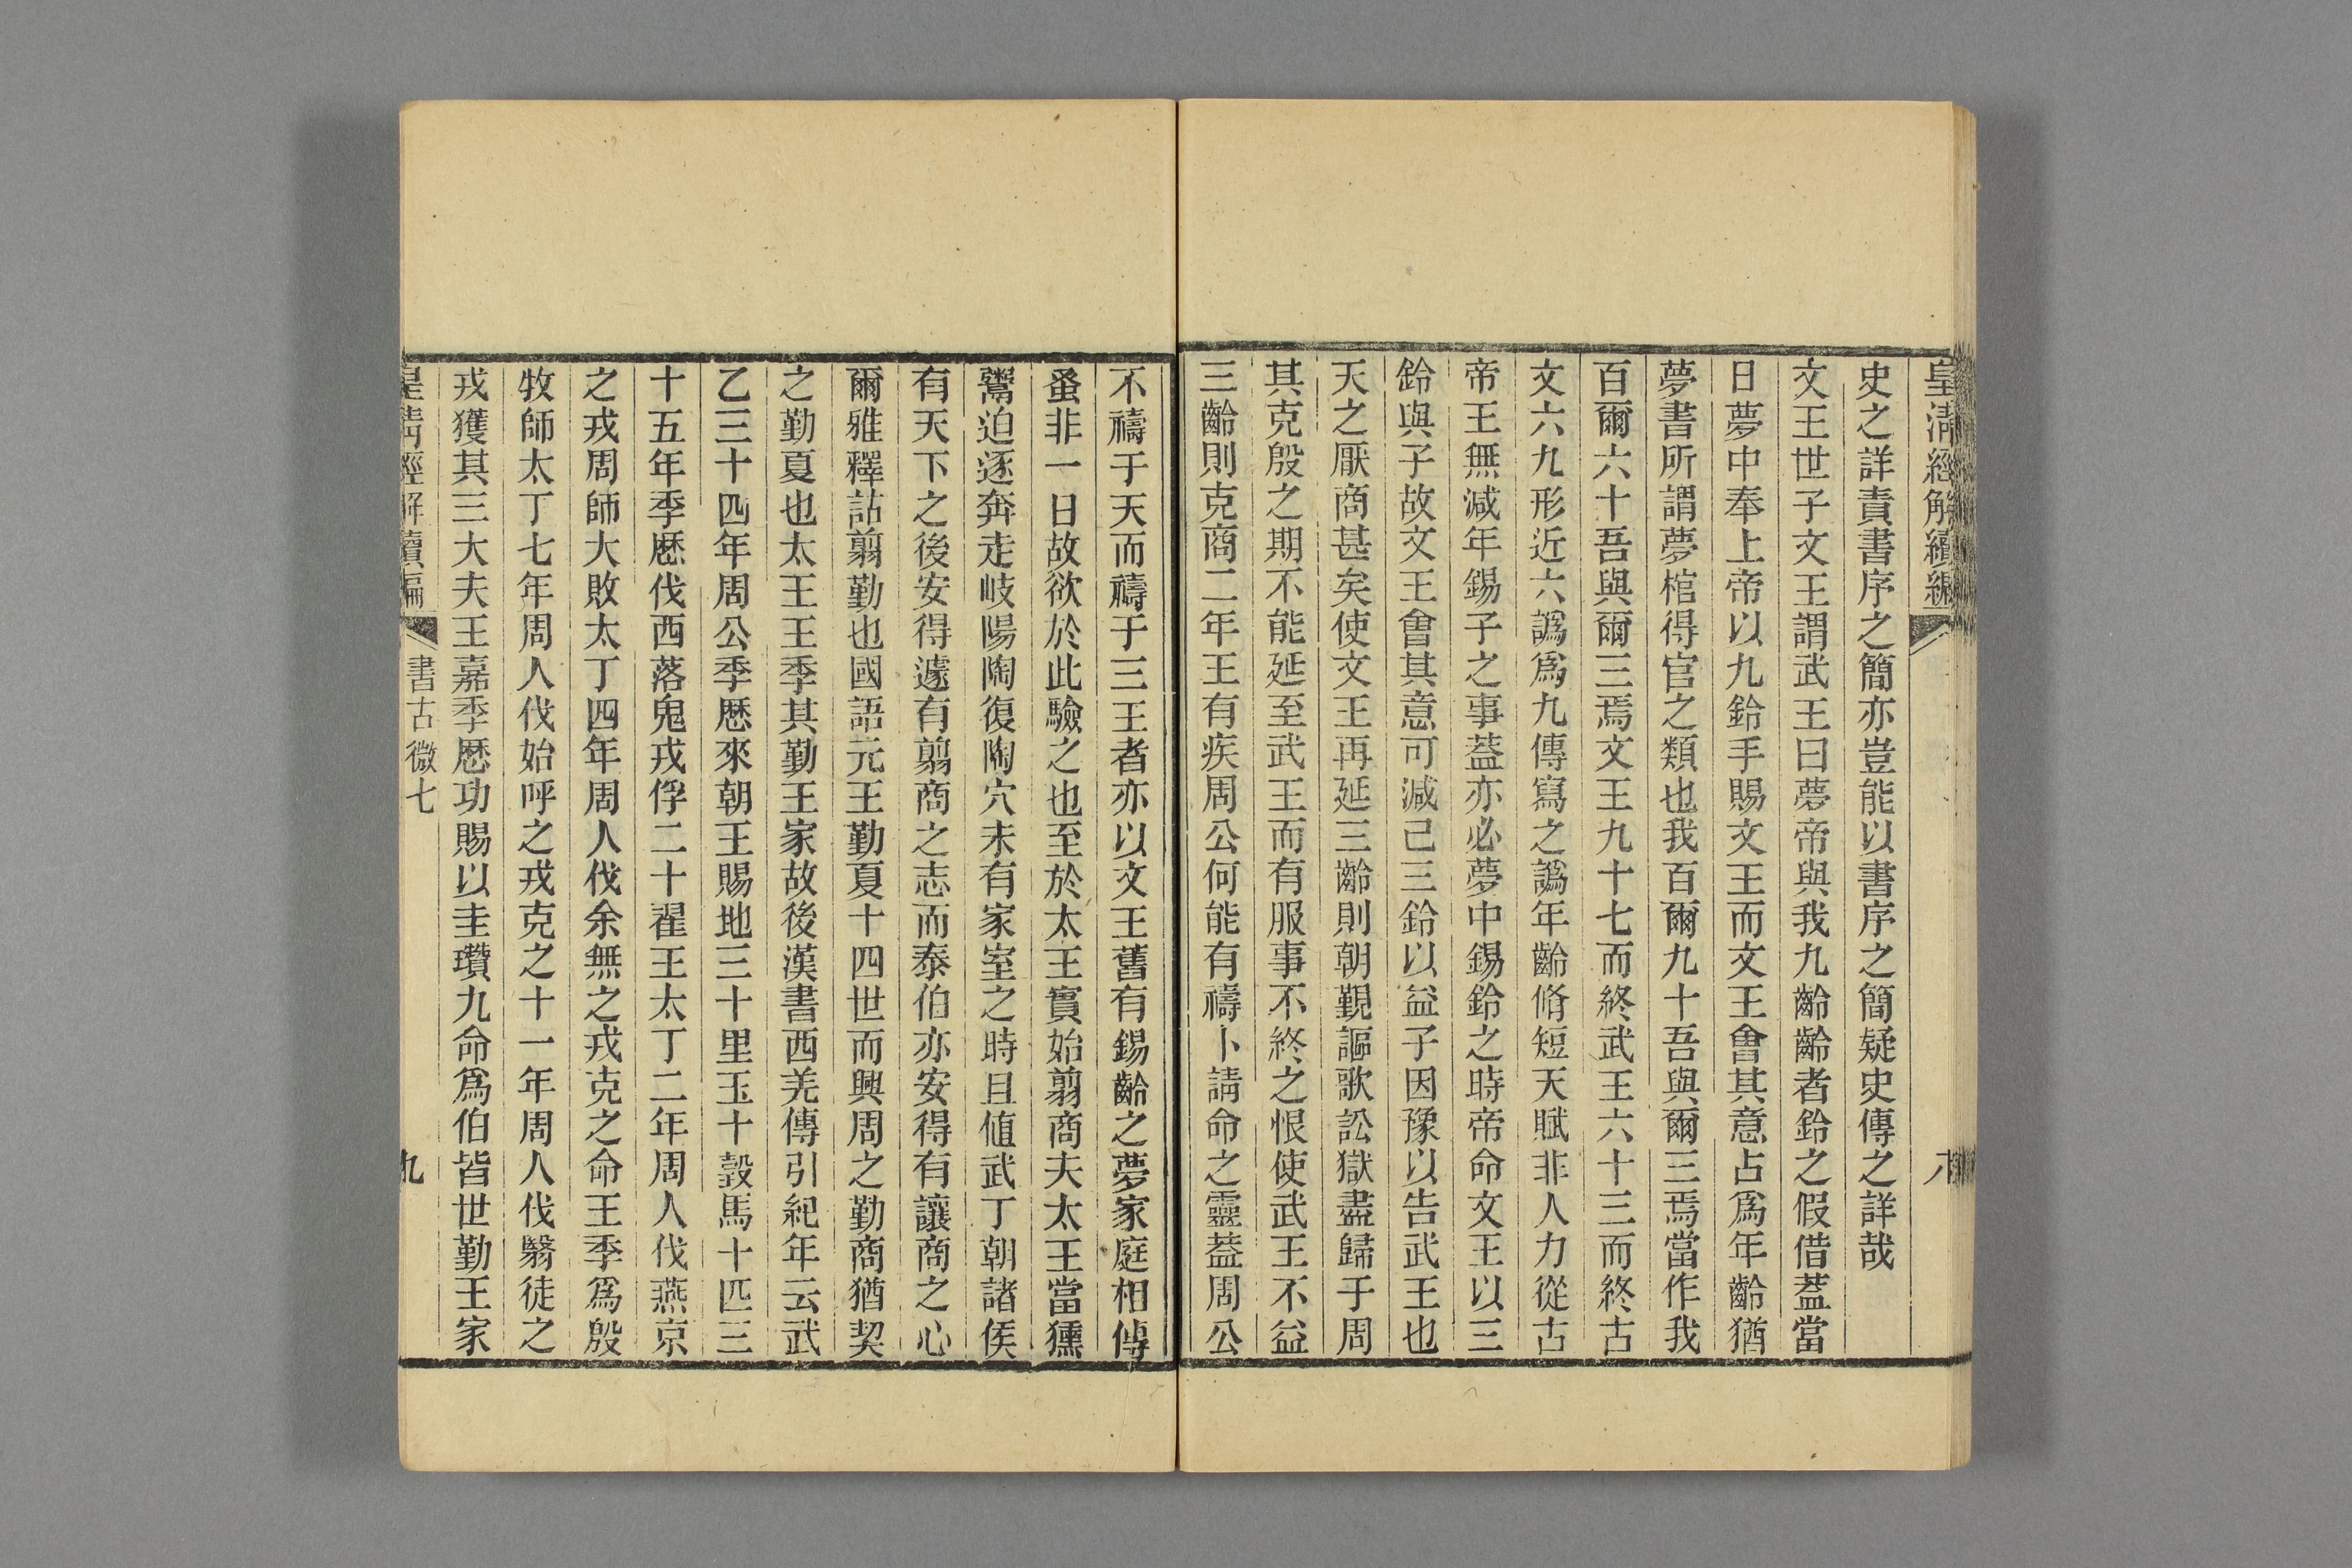 皇清經解續編
八
史之詳責書序之簡亦豈能以書序之簡疑史傳之詳哉
文王世子文王謂武王曰夢帝與我九齡齡者鈴之假借蓋當
日夢中奉上帝以九鈴手賜文王而文王會其意占爲年齡猶
夢書所謂夢棺得官之類也我百爾九十吾與爾三焉當作我
百爾六十吾與爾三焉文王九十七而終武王六十三而終古
文六九形近六譌爲九傳寫之譌年齡脩短天賦非人力從古
帝王無減年錫子之事蓋亦必夢中錫鈴之時帝命文王以三
鈴與子故文王會其意可減己三鈴以益子因豫以告武王也
天之厭商甚矣使文王再延三齡則朝覲謳歌訟獄盡歸于周
其克殷之期不能延至武王而有服事不終之恨使武王不益
三齡則克商二年王有疾周公何能有禱卜請命之靈蓋周公
不禱于天而禱于三王者亦以文王舊有錫齡之夢家庭相傳
蚤非一日故欲於此驗之也至於太王實始翦商夫太王當獯
鬻迫逐奔走岐陽陶復陶穴未有家室之時且値武丁朝諸侯
有天下之後安得遽有翦商之志而泰伯亦安得有讓商之心
爾雅釋詁翦勤也國語元王勤夏十四世而興周之勤商猶契
之勤夏也太王王季其勤王家故後漢書西羌傳引紀年云武
乙三十四年周公季歷來朝王賜地三十里玉十㲄馬十匹三
十五年季歷伐西落鬼戎俘二十翟王太丁二年周人伐燕京
之戎周師大敗太丁四年周人伐余無之戎克之命王季爲殷
牧師太丁七年周人伐始呼之戎克之十一年周人伐翳徒之
戎獲其三大夫王嘉季歷功賜以圭瓚九命爲伯皆世勤王家
皇清經解續編
書古微七
九